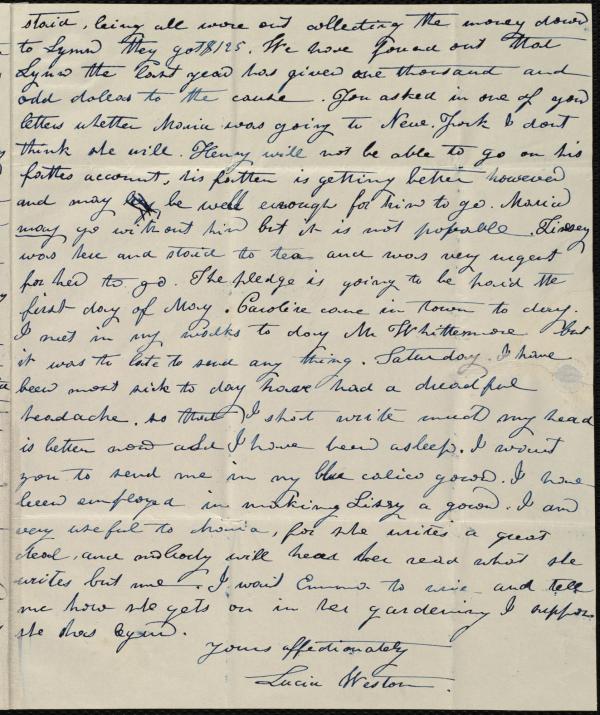 staid, being all wore out collecting the money down
to Lynn they got $125. We have found out that
Lynn the last year has given one thousand and
odd dolears to the cause. You asked in one of your
letters whether Maria was going to New York I dont
think she will. Henry will not be able to go on his
fathes account, his father is getting better however
and may be well enough for him to go. Maria
may go without him but it is not popable. Lissey
was here and staid to tea and was very urgent
for her to go. The pledge is going to be paid the
first day of May. Caroline came in town to day.
I met in my walks to day Mr Whittemore but
it was to late to send any thing. Saturday. I have
been most sick to day have had a dreadful
headache. so that I shat write much my head
is better now and I have been asleep. I want
you to send me in my blue calico gown. I have
been employed in making Lissy a gown. I am
very useful to Maria, for she writes a great
deal, and nobody will hear her read what she
writes but me. I want Emma to write and tell
me how she gets on in her gardening I suppose
she has begun.
Yours affectionately
Lucia Weston.